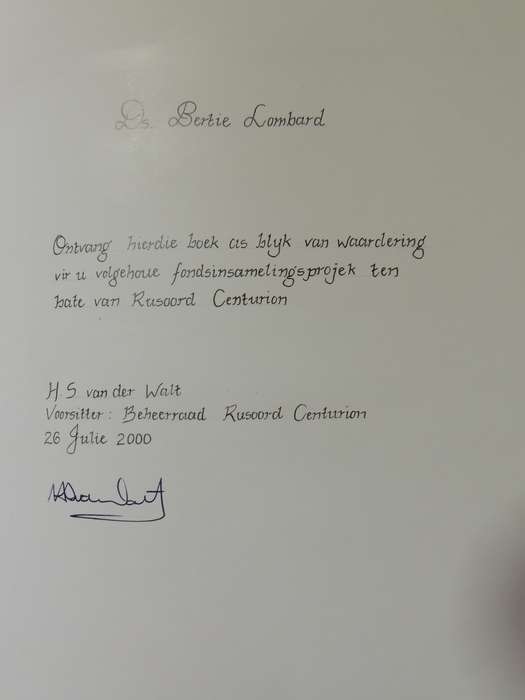 Ds. Bertie Lombard
Ontvang hierdie boek as blyk van waardering
vir u volgehoue fondsinsamelingsprojek ten
bate van Rusoord Centurion
H.S. van der Walt
Voorsitter: Beheerraad Rusoord Centurion
26 Julie 2000